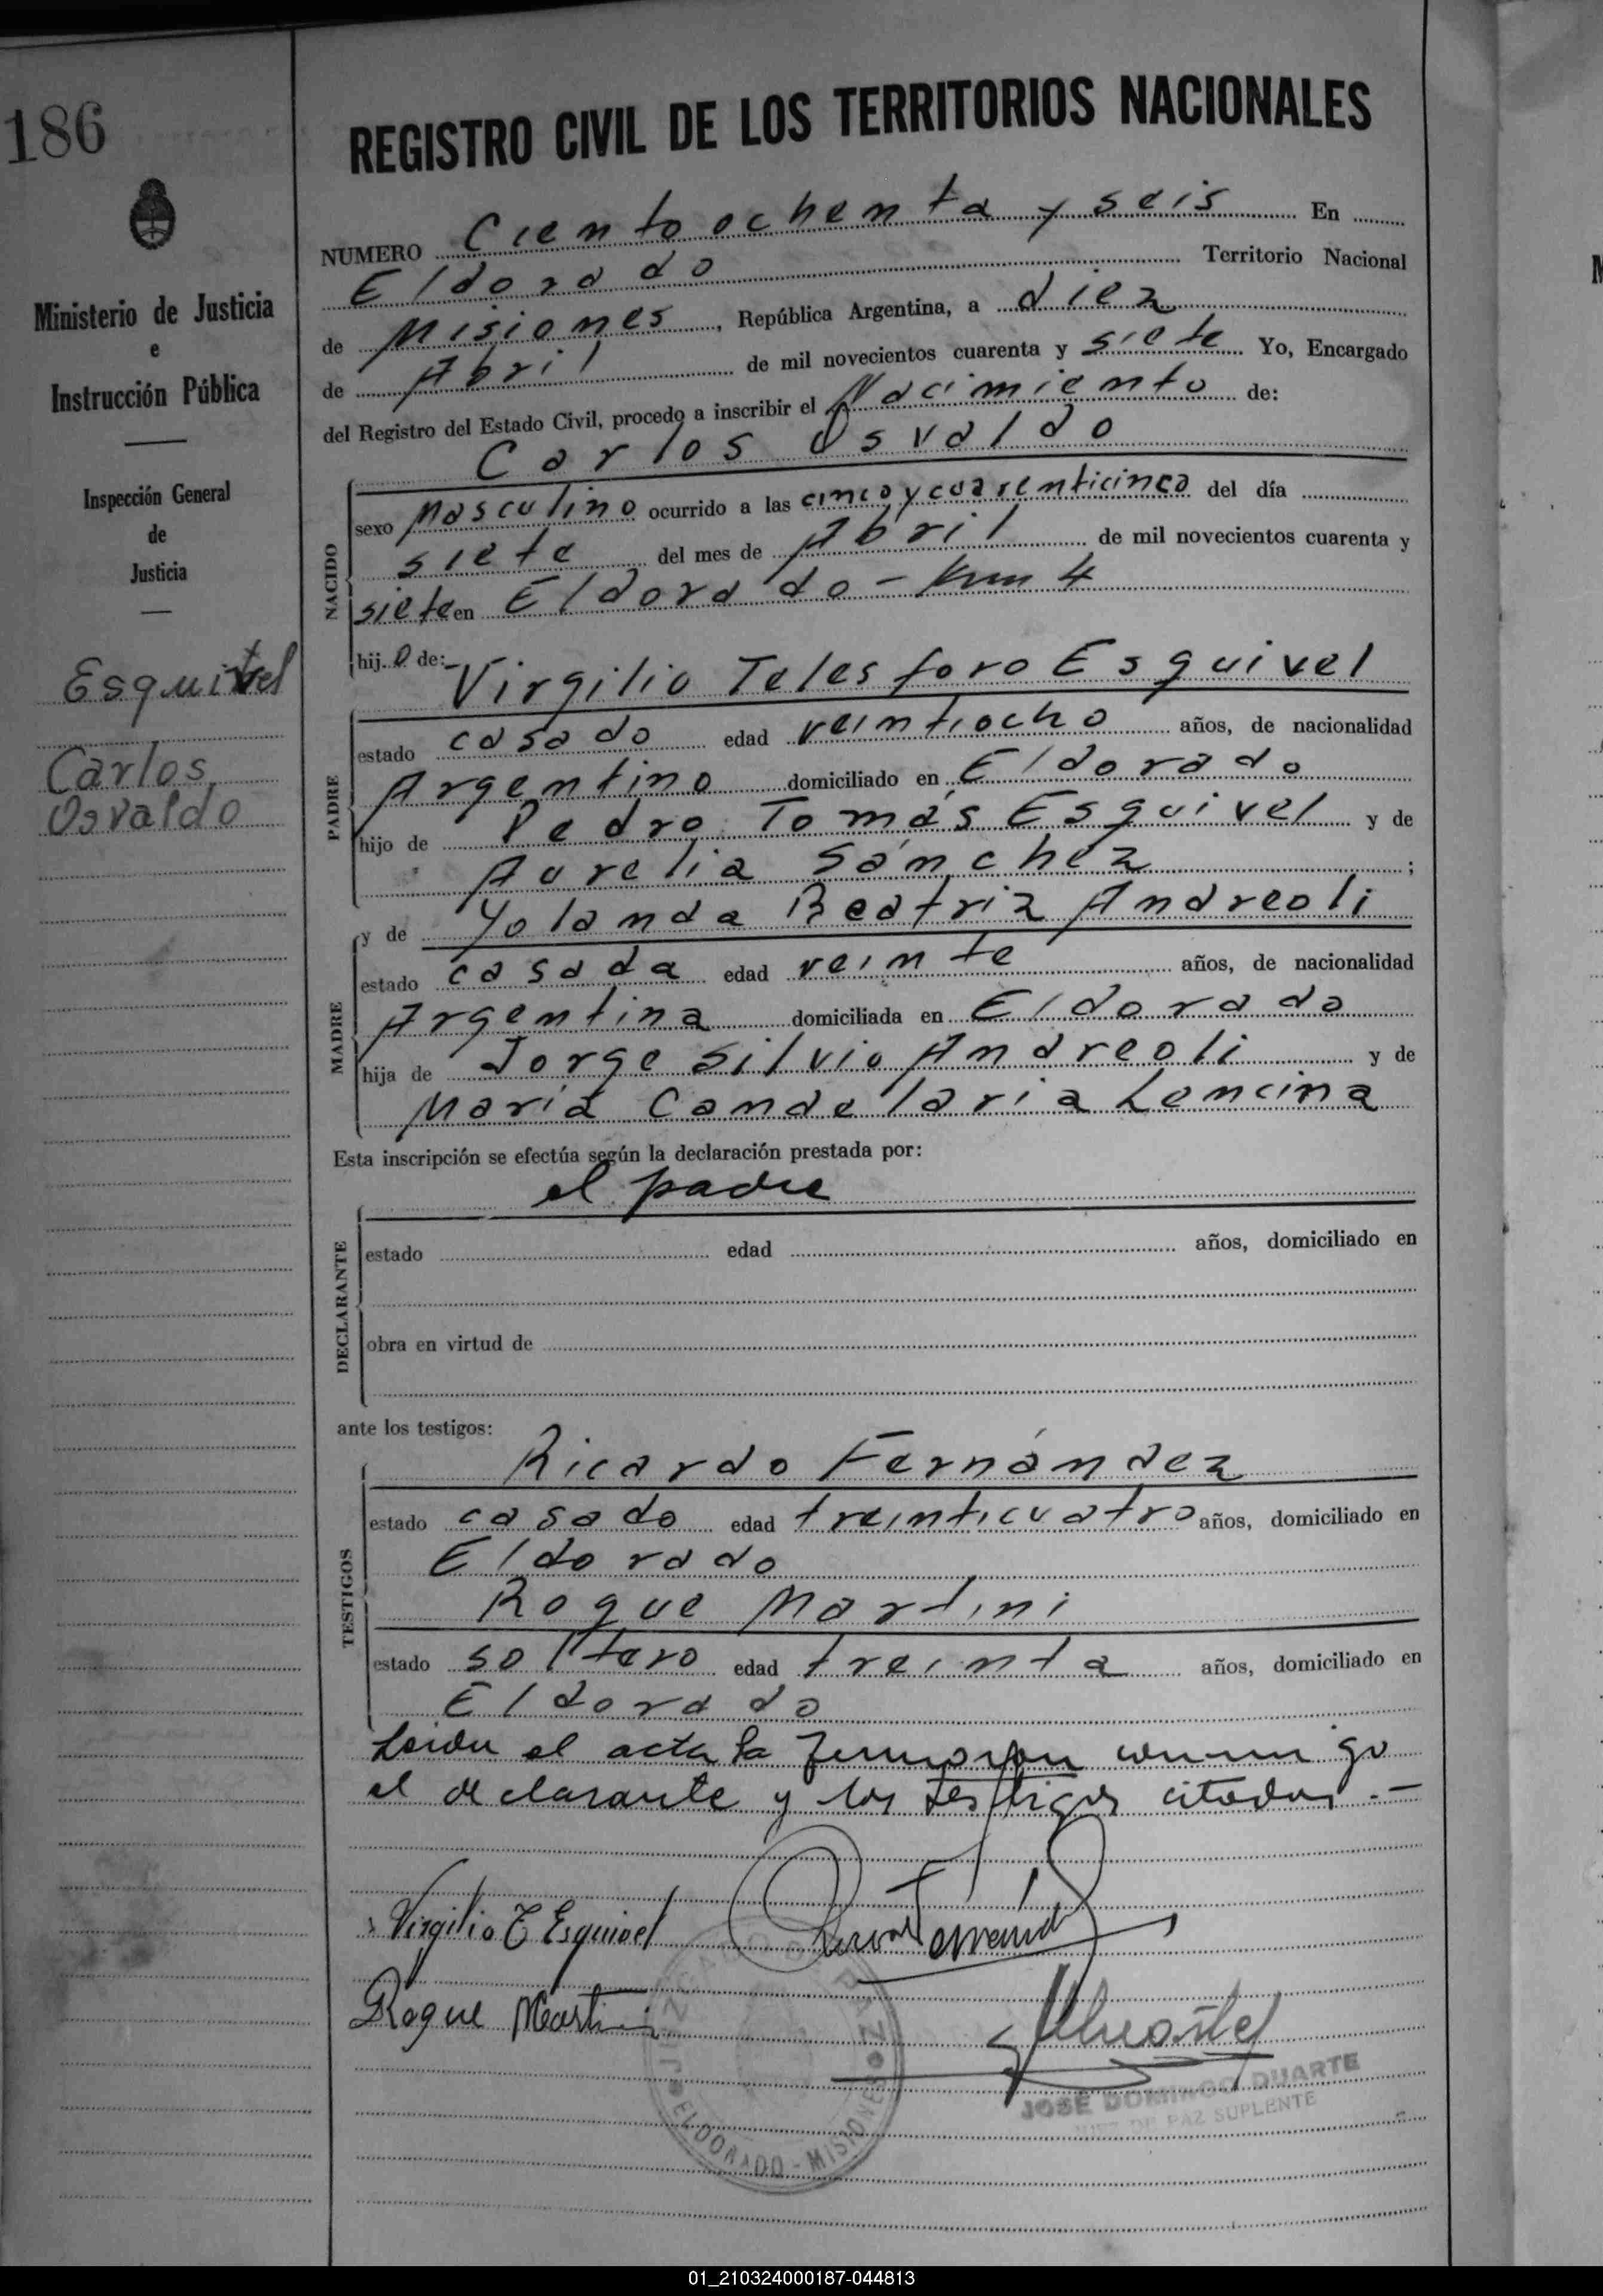 186
Ministerio de Justicia
e
Instrucción Pública
Inspección General
de
Justicia
Esquivel
Carlos
Osvaldo
REGISTRO CIVIL DE LOS TERRITORIOS NACIONALES
NUMERO Ciento ochenta y seis En
Eldorado Territorio Nacional
de Misiones, República Argentina, a diez
de Abril de mil novecientos cuarenta y siete Yo, Encargado
del Registro del Estado Civil, procedo a inscribir el Nacimiento de:
Carlos Osvaldo
NACIDO
sexo Masculino ocurrido a las cinco y cuarenticinco del día
siete del mes de Abril de mil novecientos cuarenta y
siete en Eldorado - Km 4
hijo de:
Virgilio Telesforo Esquivel
PADRE
estado casado edad veintiocho años, de nacionalidad
Argentino domiciliado en Eldorado
hijo de Pedro Tomás Esquivel y de
Aurelia Sánchez ;
y de Yolanda Beatriz Andreoli
MADRE
estado casada edad veinte años, de nacionalidad
Argentina domiciliada en Eldorado
hija de Jorge Silvio Andreoli y de
María Candelaria Lencina
Esta inscripción se efectúa según la declaración prestada por:
el padre
DECLARANTE
estado edad años, domiciliado en
obra en virtud de
ante los testigos:
Ricardo Fernández
TESTIGOS
estado casado edad treinticuatro años, domiciliado en
Eldorado
Roque Martini
estado soltero edad treinta años, domiciliado en
Eldorado
Leida el acta la conmigo
el declarante y los testigos citados.-
Virgilio T Esquivel
Roque Martini
JUZGADO DE PAZ
ELDORADO - MISIONES
JOSÉ DOMINGO DUARTE
JUEZ DE PAZ SUPLENTE
01_210324000187-044813